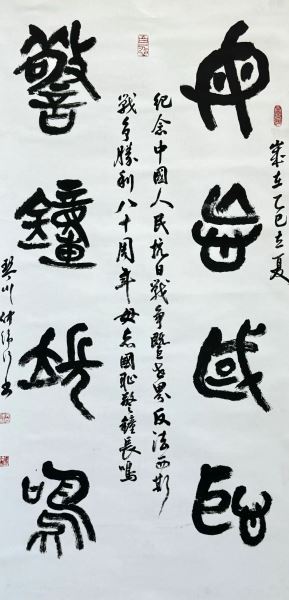 歲在乙巳立夏
毋忘國恥
紀念中國人民抗日戰爭暨世界反法西斯
戰爭勝利八十周年毋忘國恥警鐘長鳴
警鐘長鳴
琴川